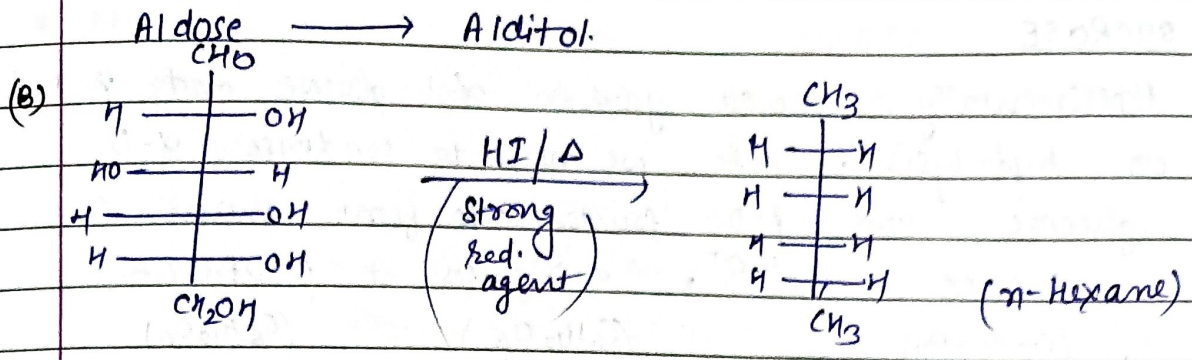 Aldose ⟶ Alditol.
(B)
CHO
H OH
HO H
H OH
H OH
CH2OH
HI/Δ
(Strong
red.
agent)
CH3
H H
H H
H H
H H
CH3
(n-Hexane)